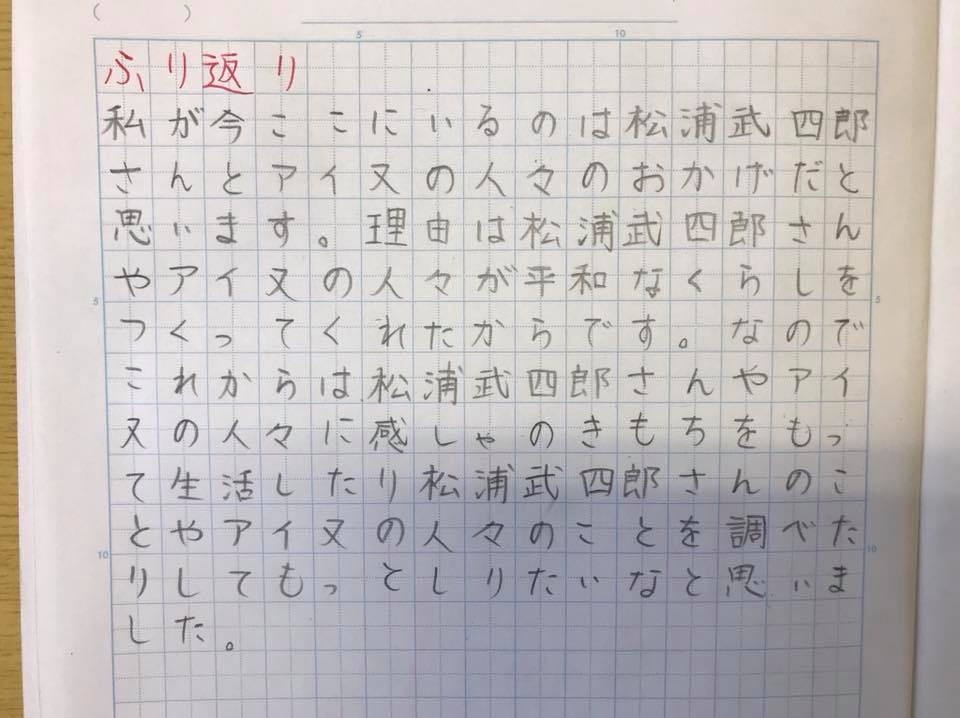 5
10
ふり返り
私が今ここにいるのは松浦武四郎
さんとアイヌの人々のおかげだと
思います。理由は松浦武四郎さん
やアイヌの人々が平和なくらしを
5
5
つくってくれたからです。なので
これからは松浦武四郎さんやアイ
ヌの人々に感しゃのきもちをもっ
て生活したり松浦武四郎さんのこ
とやアイヌの人々のことを調べた
10
10
りしてもっとしりたいなと思いま
した。